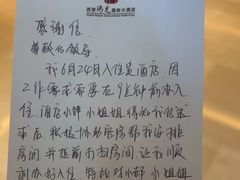 西安阳光国际大酒店
感谢信
尊敬的领导
我6月24日入住贵酒店,因
工作需求需要在9点钟前办入
住,酒店小韩小姐姐得知我的需
求后,积极协助
房间并提前打扫房间,让我顺
利办好入住,特此对小韩小姐姐